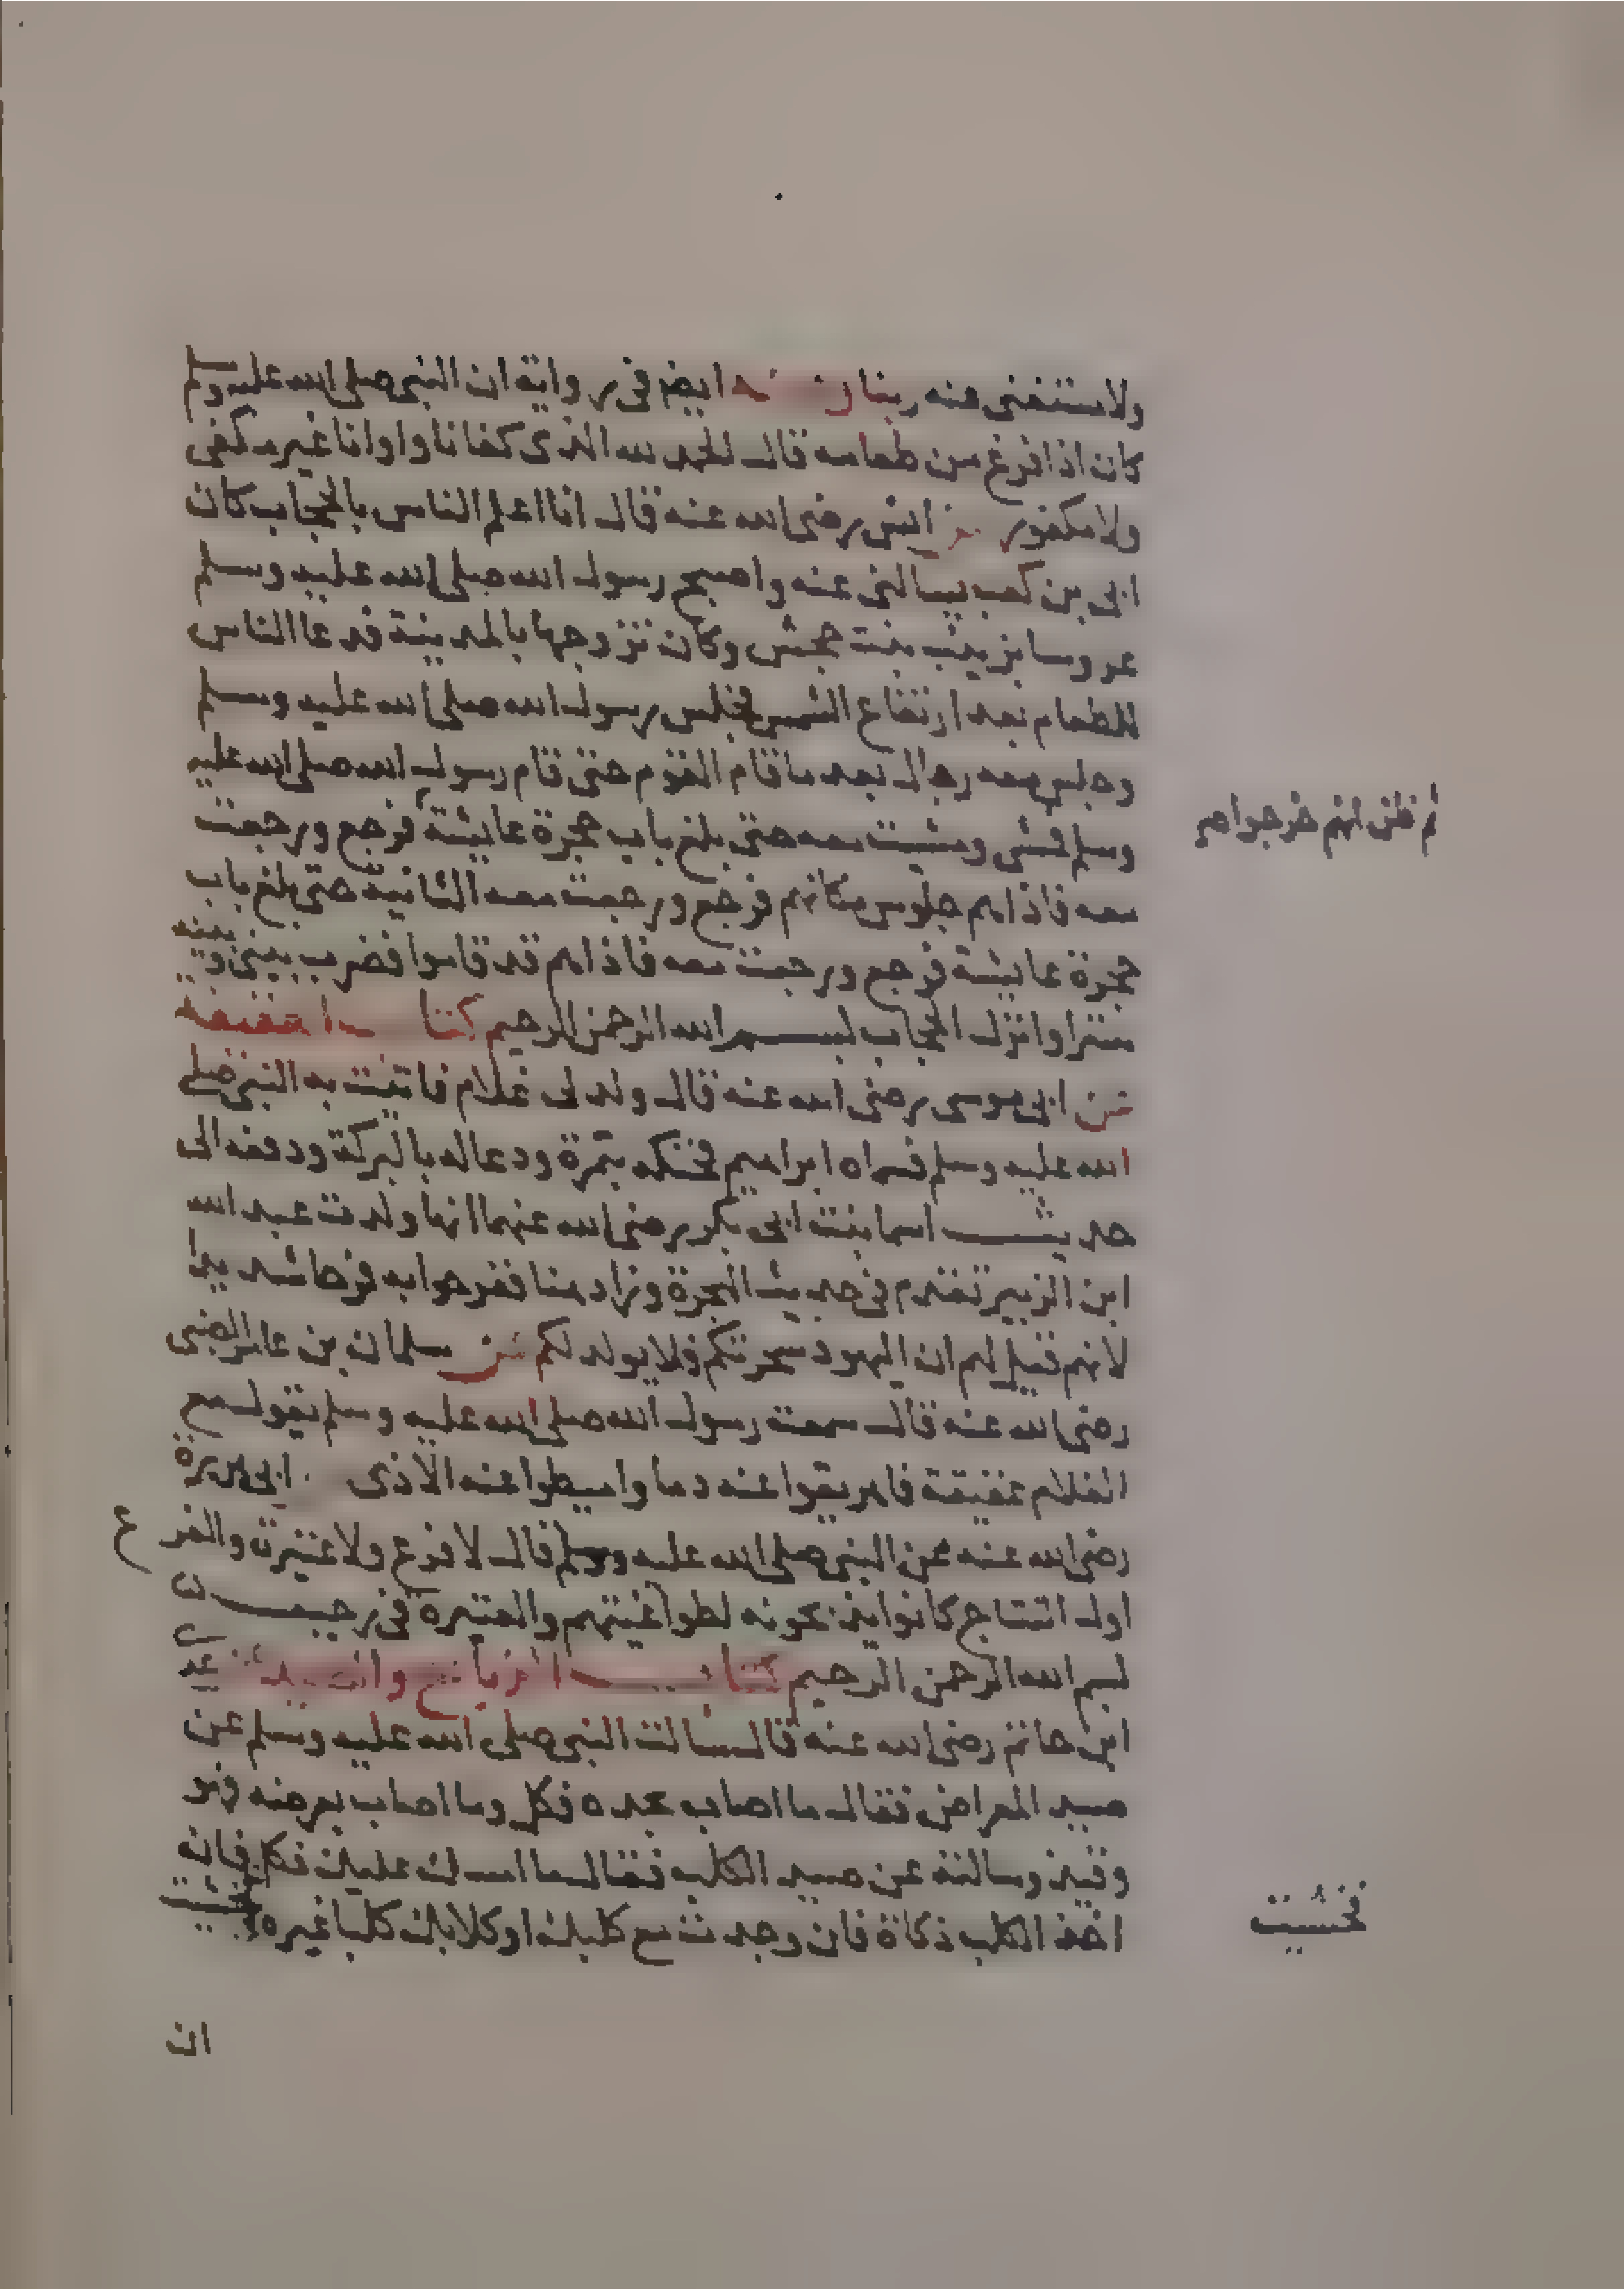 ولا مستغنى عنه ربنا وعنه ايضا فى رواية ان النبى صلى الله عليه وسلم
كان اذا فرغ من طعامه قال الحمد لله الذى كفانا واوانا غير مكفى
ولا مكفور عن انس رضى الله عنه قال انا اعلم الناس بالحجاب كان
ابى بن كعب يسالنى عنه واصبح رسول الله صلى الله عليه وسلم
عروسا بزينب بنت جحش وكان تزوجها بالمدينة فدعا الناس
للطعام بعد ارتفاع الشمس فجلس رسول الله صلى الله عليه وسلم
وجلس معه رجال بعد ما قام القوم حتى قام رسول الله صلى الله عليه
وسلم فمشى ومشيت معه حتى بلغ باب حجرة عايشة فرجع ورجعت
ثم ظن انهم خرجوا صح
معه فاذا هم جلوس مكانهم فرجع ورجعت معه الثانية حتى بلغ باب
حجرة عايشة فرجع ورجعت معه فاذا هم قد قاموا فضرب بينى وبينه
سترا وانزل الحجاب بسم الله الرحمن الرحيم كتاب العقيقة
عن ابى موسى رضى الله عنه قال ولد لى غلام فاتيت به النبى صلى
الله عليه وسلم فسماه ابراهيم فحنكه بتمرة ودعا له بالبركة ودفعه الى
حديث اسما بنت ابى بكر رضى الله عنهما انها ولدت عبد الله
ابن الزبير تقدم فى حديث الهجرة وزاد هنا ففرحوا به فرحا شديدا
لانهم قيل لهم ان اليهود سحرتكم فلا يولد لكم عن سلمان بن عامر الضبى
رضى الله عنه قال سمعت رسول الله صلى الله عليه وسلم يقول مع
الغلام عقيقة فاهريقوا عنه دما واميطوا عنه الاذى ابى هريرة
رضى الله عنه عن النبى صلى الله عليه وسلم قال لا فرع ولا عتيرة والفرع
اول النتاج كانوا يذبحونه لطواغيتهم والعتيرة فى رجب
بسم الله الرحمن الرحيم كتاب الذبائح والصيد عن عدى
ابن حاتم رضى الله عنه قال سالت النبى صلى الله عليه وسلم عن
صيد المعراض فقال ما اصاب بحده فكل وما اصاب بعرضه فهو
وقيذ وسالته عن صيد الكلب فقال ما امسك عليك فكل فان
اخذ الكلب ذكاة فان وجدت مع كلبك او كلابك كلبا غيره فخشيت
فخشيت
ان